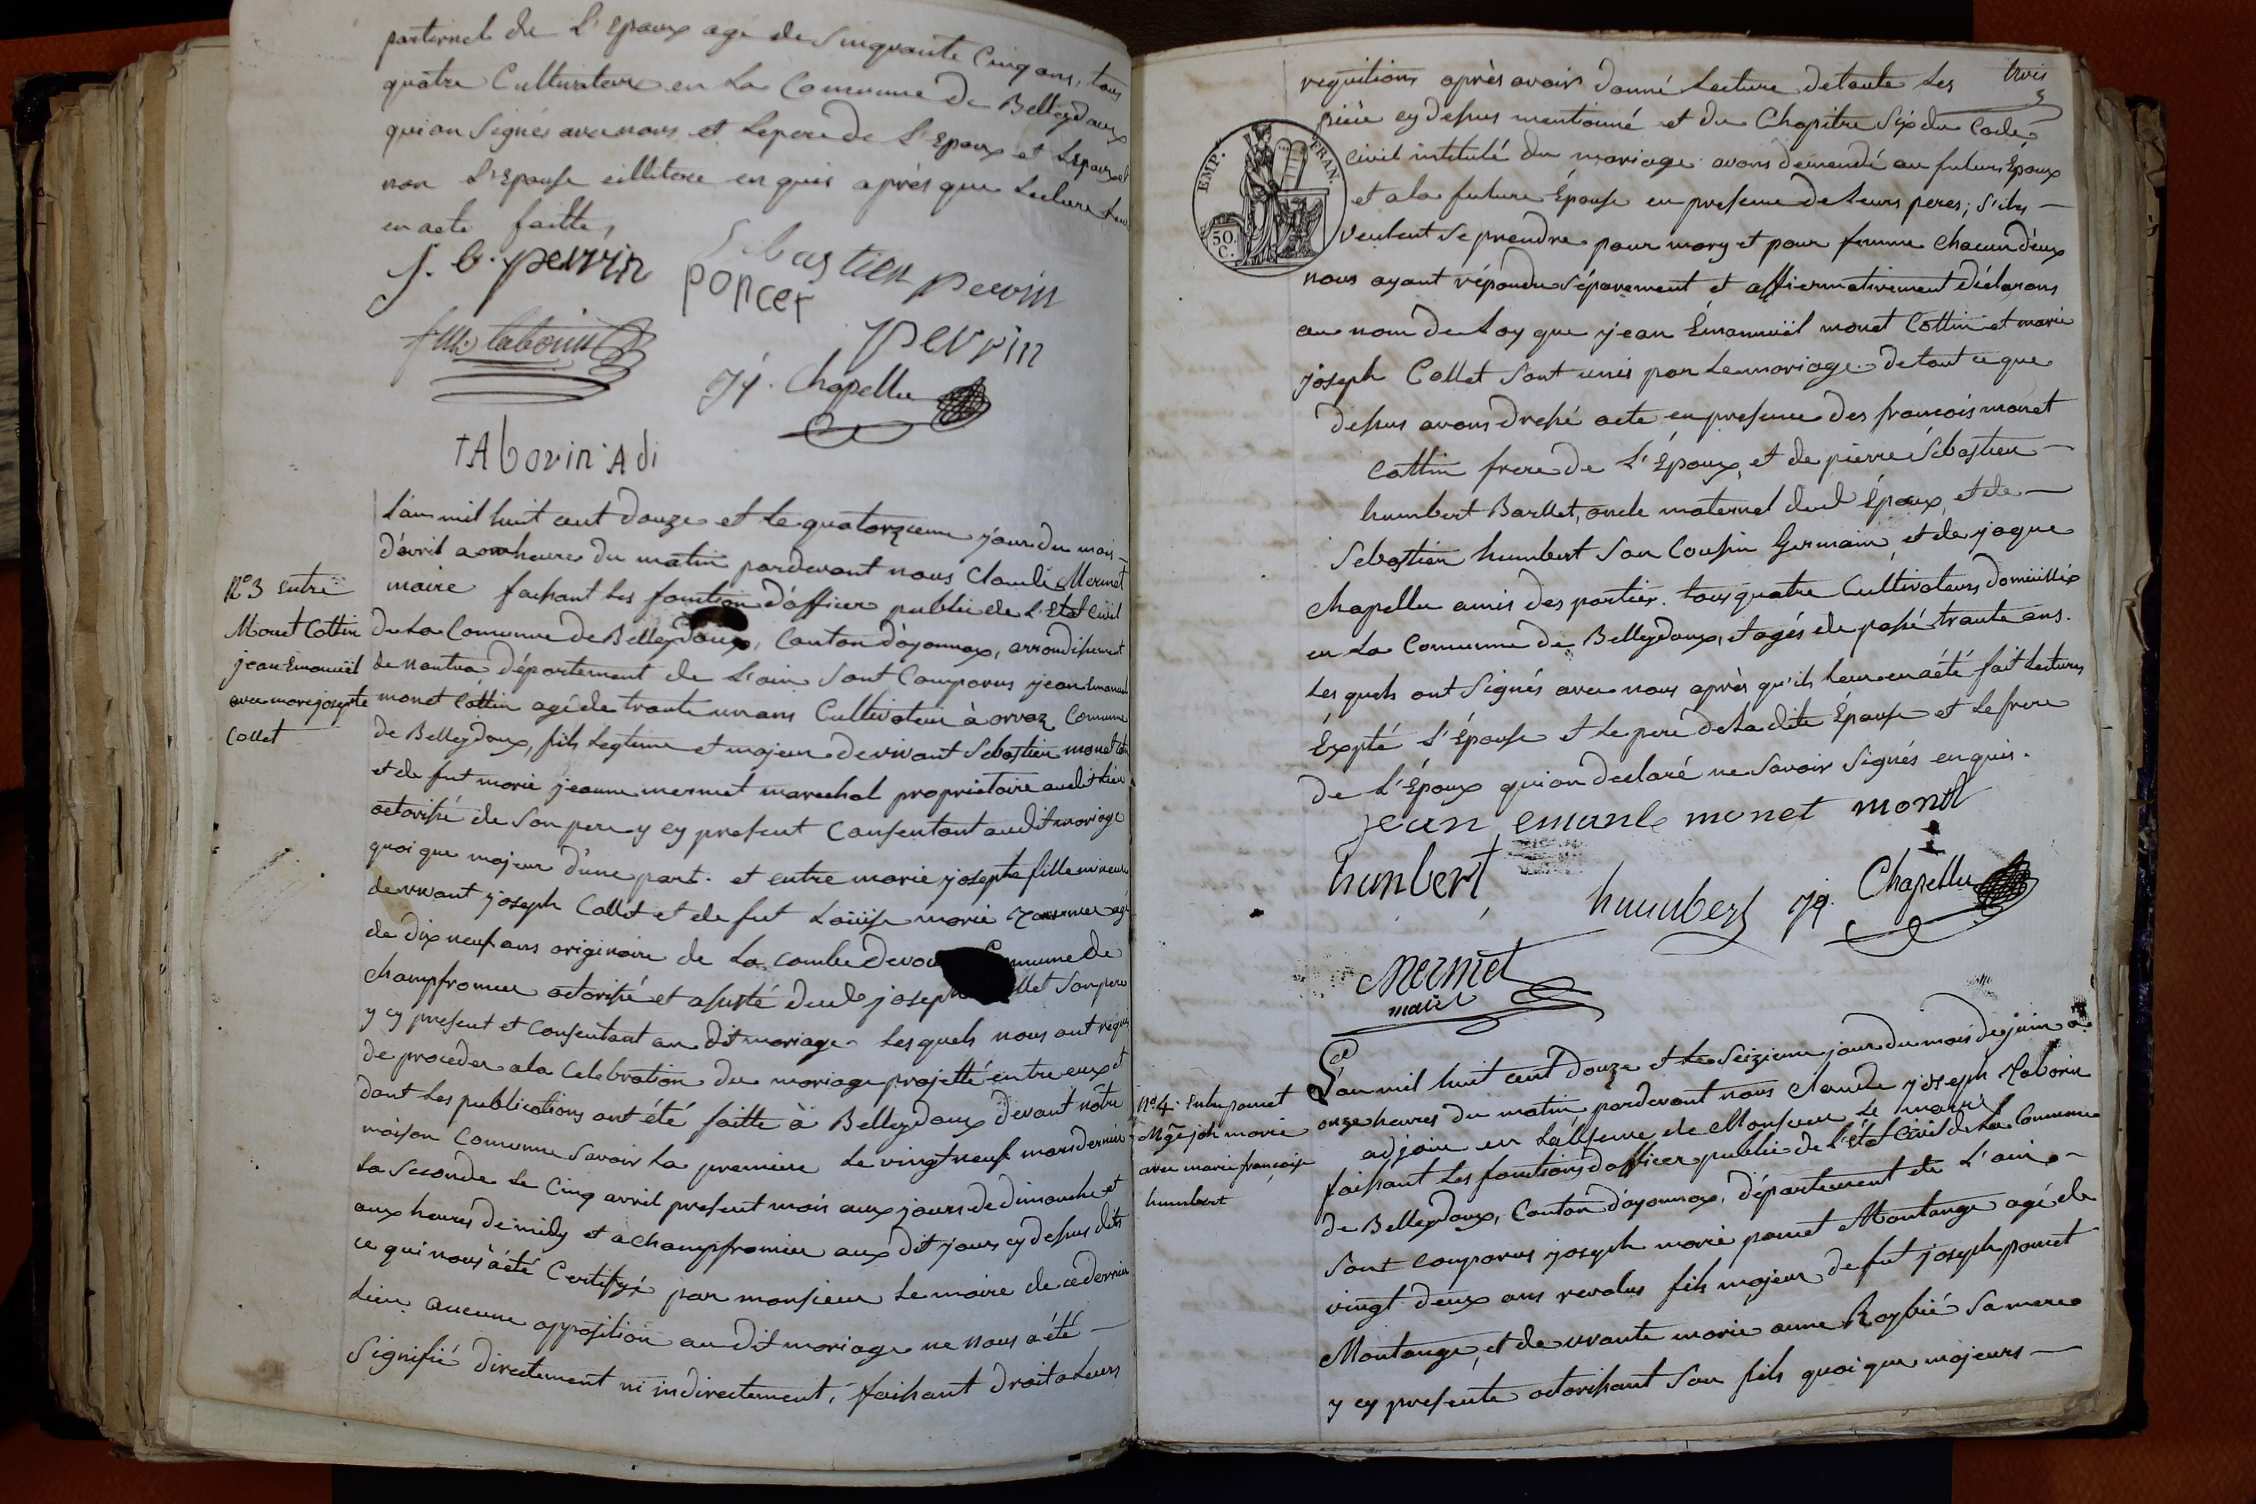 paternel de L'Epoux agé de Sinquante Cinq ans, tous
quatre Cultivateur en La Comunne de Belleydoux
qui on Signés avec nous et Lepere de L'Epoux et L'Epoux et
non L'Epouse eillitere en quis après que Lecture Leur
en aete faitte,
J. b. perrin
Sebastien perrin
poncet
perrin
Jq. Chapellu
tAborin Adi
L'an mil huit cent douze et le quatorzieme jour du mois
d'avril a onze heures du matin pardevant nous Claude Mermet
maire faisant Les fonction d'officier public de L'Etat Civil
De La Comunne de Belleydoux, Canton d'ojonnax, arrondissement
de nantua département de L'ain Sont Comparus jean Emanuel
monet Cottin agé de trante un ans Cultivateur à orvaz Comunne
de Belleydoux, fils Légtime et majeur de vivant Sebastien monet
et de fut marie jeanne mermet marechal proprietaire audit Lieu
actorisé de Son pere y cy present Consentant audit mariage
quoi que majeur d'une part. et entre marie josephte fille mineure
de vivant joseph Collet et de fut Loüise marie agé
de dix neuf ans originaire de La Combe Comunne de
champfromier actorisé et asisté dud joseph Collet Son pere
y cy present et Consentant au dit mariage. Les quels nous ont réquis
de proceder a la Celebration du mariage projetté entre eux et
dont Les publications ont été faitte à Belleydoux devant nôtre
maison Comunne Savoir La premiere Le vingt neuf mars dernier
La Seconde Le Cinq avril present mois aux jours de dimanche et
aux heures de midy et a champfromier aux dit jours cy desus dits
ce qui nous à été Certifyé par monsieur Le maire de ce dernier
Lieu aucune opposition au dit mariage ne nous a été
Signifié directement ni indirectement, faisant droit a Leurs
N° 3 Entre
Monet Cottin
jean Emanuël
avec marie josephte
Collet
trois
3
requitions après avoir donné Lecture de toute Les
piéce cy desus mentionné et du Chapitre Six du Code
civil intitulé du mariage. avons demandé au futur Époux
et a la future Épouse en presence de Leurs peres; S'ils
veulent Se prendre pour mary et pour femme chacun d'eux
nous ayant répondu Séparement et affiermativement Déclarons
au nom de Loy que jean Émanuël monet Cottin et marie
joseph Collet Sont unis par Le mariage. de tout ce que
desus avons dressé acte en presence des francois monet
Cottin frere de L'Époux, et de pierre Sébastien
humbert Barllet, oncle maternel dud Époux, et de
Sebastien humbert Son Cousin Germain, et de jaque
chapellu amis des parties. tous quatre Cultivateurs domiciliés
en La Comunne de Belleydoux, et agés de passé trante ans.
Les quels ont Signés avec nous après qu'ils Leur en a été fait Lectures
Éxpté L'Épouse et Le pere de La dite Épouse et Le frere
de L'Époux qui on declaré ne Savoir Signés enquis.
EMP. FRAN.
50.
C.
jean emanle monet monet
humbert
humbert
Jq. Chapellu
Mermet
maire
L'an mil huit cent douze et Le Seizieme jour du mois de juin a
onze heures du matin pardevant nous claude joseph Taborin
adjoin en L'absence de Monsieur Le maire
faisant Les fonctions d'officier public de L'Etat Civil de La Comunne
de Belleydoux, Canton d'ojonnax, département de L'ain
Sont comparus joseph marie poncet Montange agé de
vingt deux ans revolus fils majeur de fut joseph poncet
Montange, et de vivante marie anne Roybié Sa mere
y cy presente actorisant Son fils quoi que majeurs
N° 4. Entre poncet
Mge jph marie
avec marie françoise
humbert